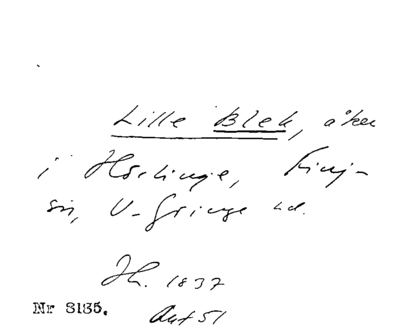 Lille Blek, åker
i Hörlinge, Finj-
sn, V-Göinge hd.
Jh. 1837
Nr 3135. Akt 51